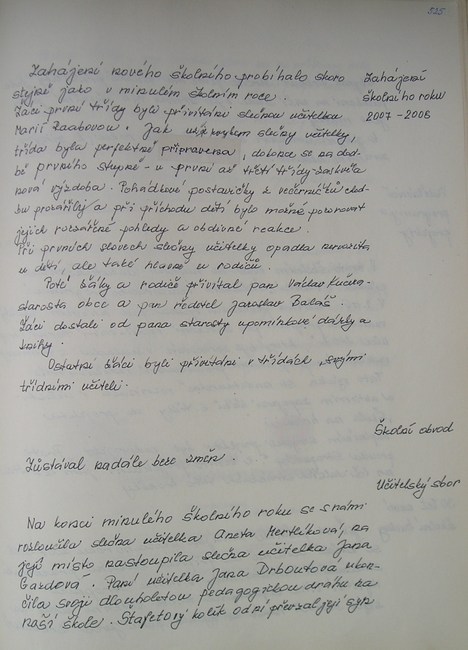 525
Zahájení nového školního probíhalo skoro
stejně jako v minulém školním roce.
Zahájení
školního roku
2007-2008
Žáci první třídy byli přivítáni slečnou učitelkou
Marií Raabovou. Jak už je zvykem slečny učitelky,
třída byla perfektně připravena, dokonce se na chod-
bě prvního stupně - u první až třetí třídy - zaskvěla
nová výzdoba. Pohádkové postavičky z večerníčků chod-
bu prozářily a při příchodu dětí bylo možné pozorovat
jejich rozzářené pohledy a obdivné reakce.
Při prvních slovech slečny učitelky opadla nervozita
u dětí, ale také hlavně u rodičů.
Poté žáky a rodiče přivítal pan Václav Kučera-
starosta obce a pan ředitel Jaroslav Balaš.
Žáci dostali od pana starosty upomínkové dárky a
knihy.
Ostatní žáci byli přivítáni v třídách svými
třídními učiteli.
Školní obvod
Zůstával nadále beze změn.
Učitelský sbor
Na konci minulého školního roku se s námi
rozloučila slečna učitelka Aneta Mertlíková, na
její místo nastoupila slečna učitelka Jana
Gazdová. Paní učitelka Jana Drboutová ukon-
čila svoji dlouholetou pedagogickou dráhu na
naší škole. Štafetový kolík od ní převzal její syn